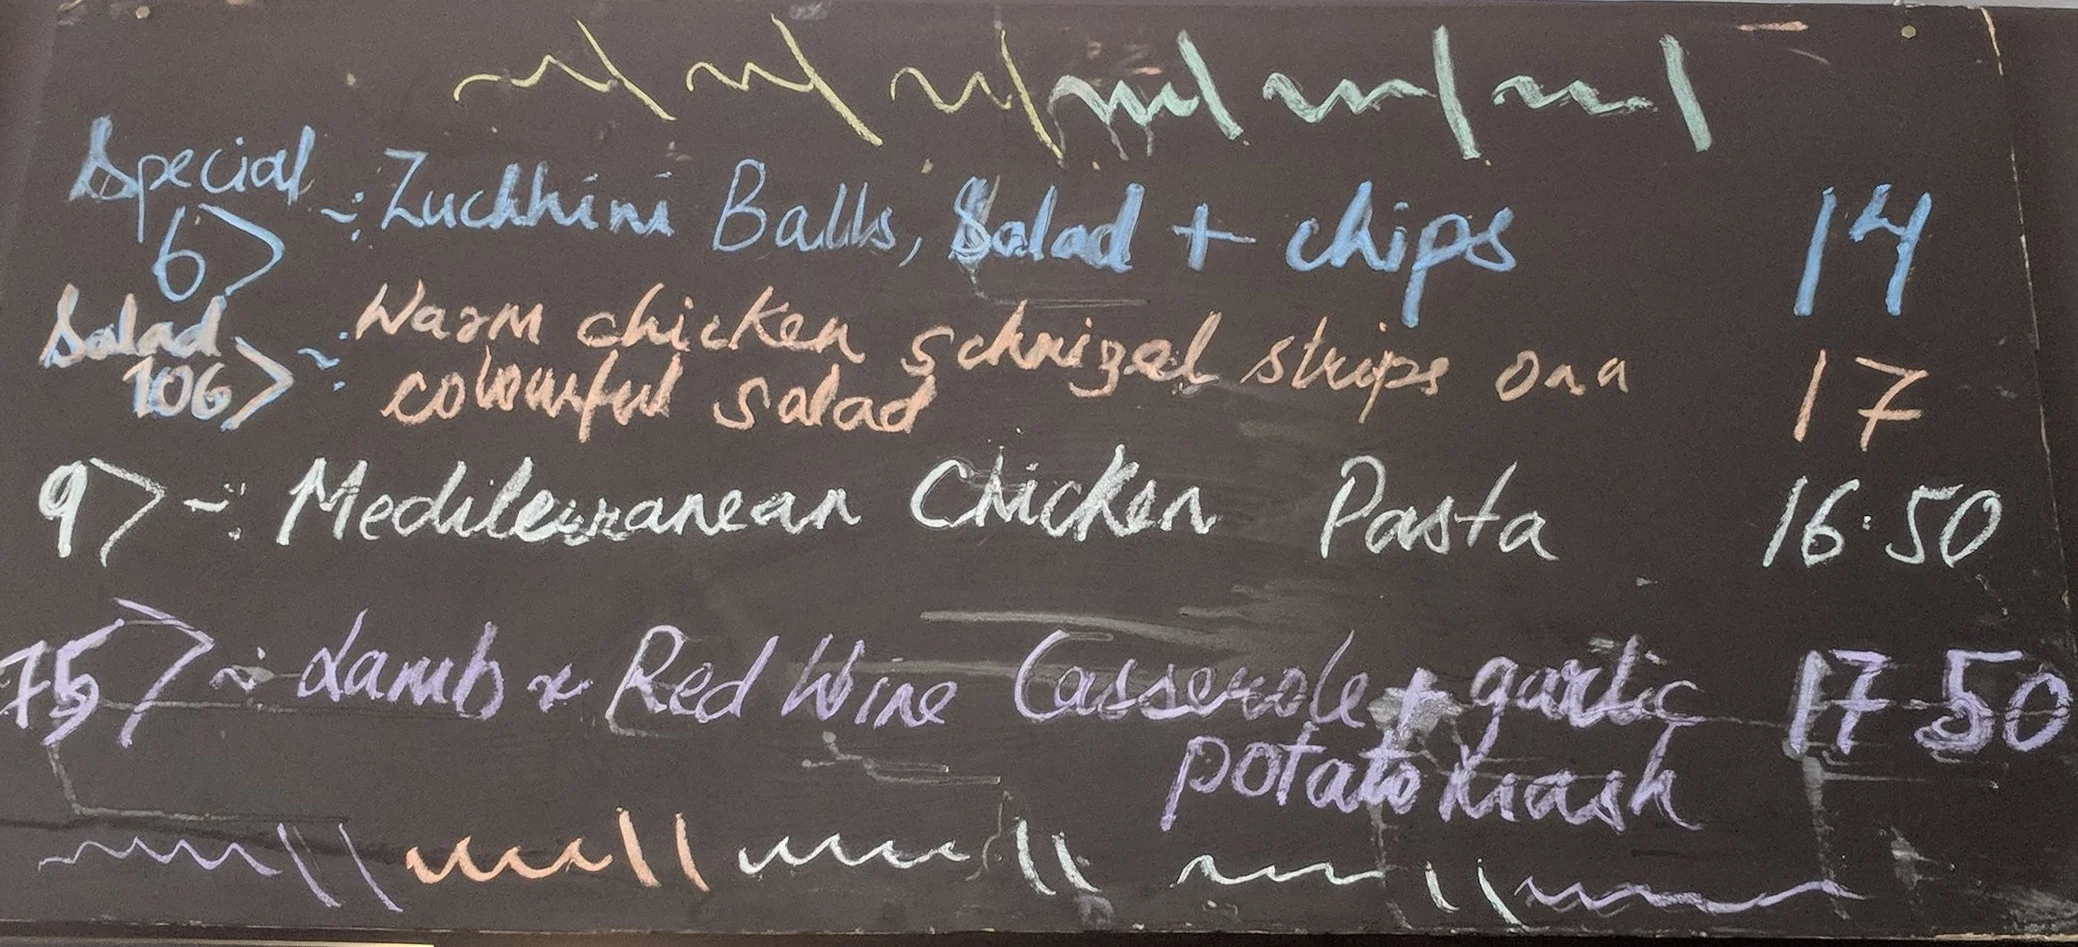 Special
6> ~: Zuchhini Balls, Salad + chips 14
Salad
106> ~: Warm chicken schnizel strips on a
colourful salad 17
9> ~: Mediterranean Chicken Pasta 16.50
75> ~: Lamb & Red Wine Casserole + garlic 17-50
potato mash